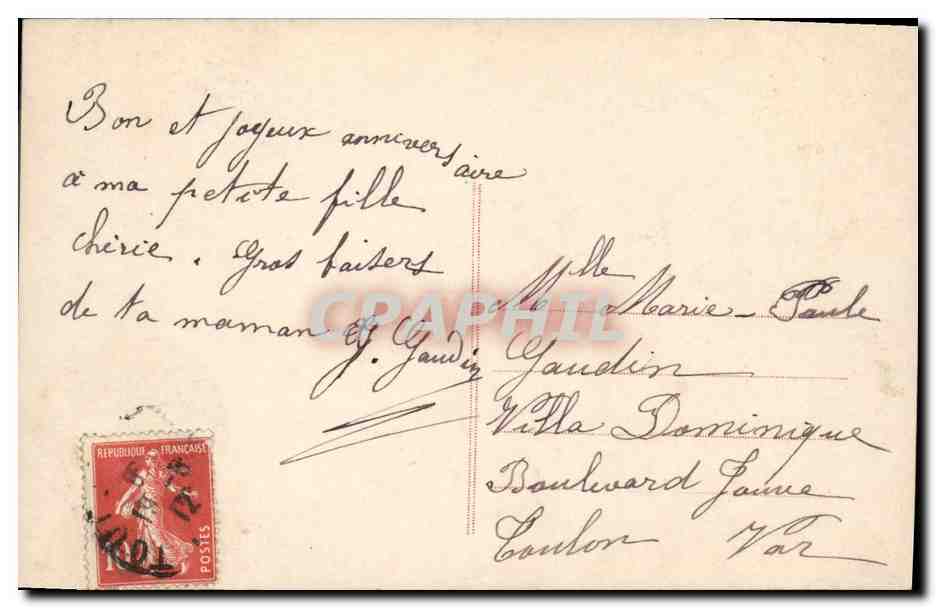 Bon et joyeux anniversaire
à ma petite fille
chérie. Gros baisers
de ta maman
J. Gaudin
Mlle Marie-Paule
Gaudin
Villa Dominique
Boulevard Jauve
Toulon Var
CPAPHIL
REPUBLIQUE FRANÇAISE
POSTES
10